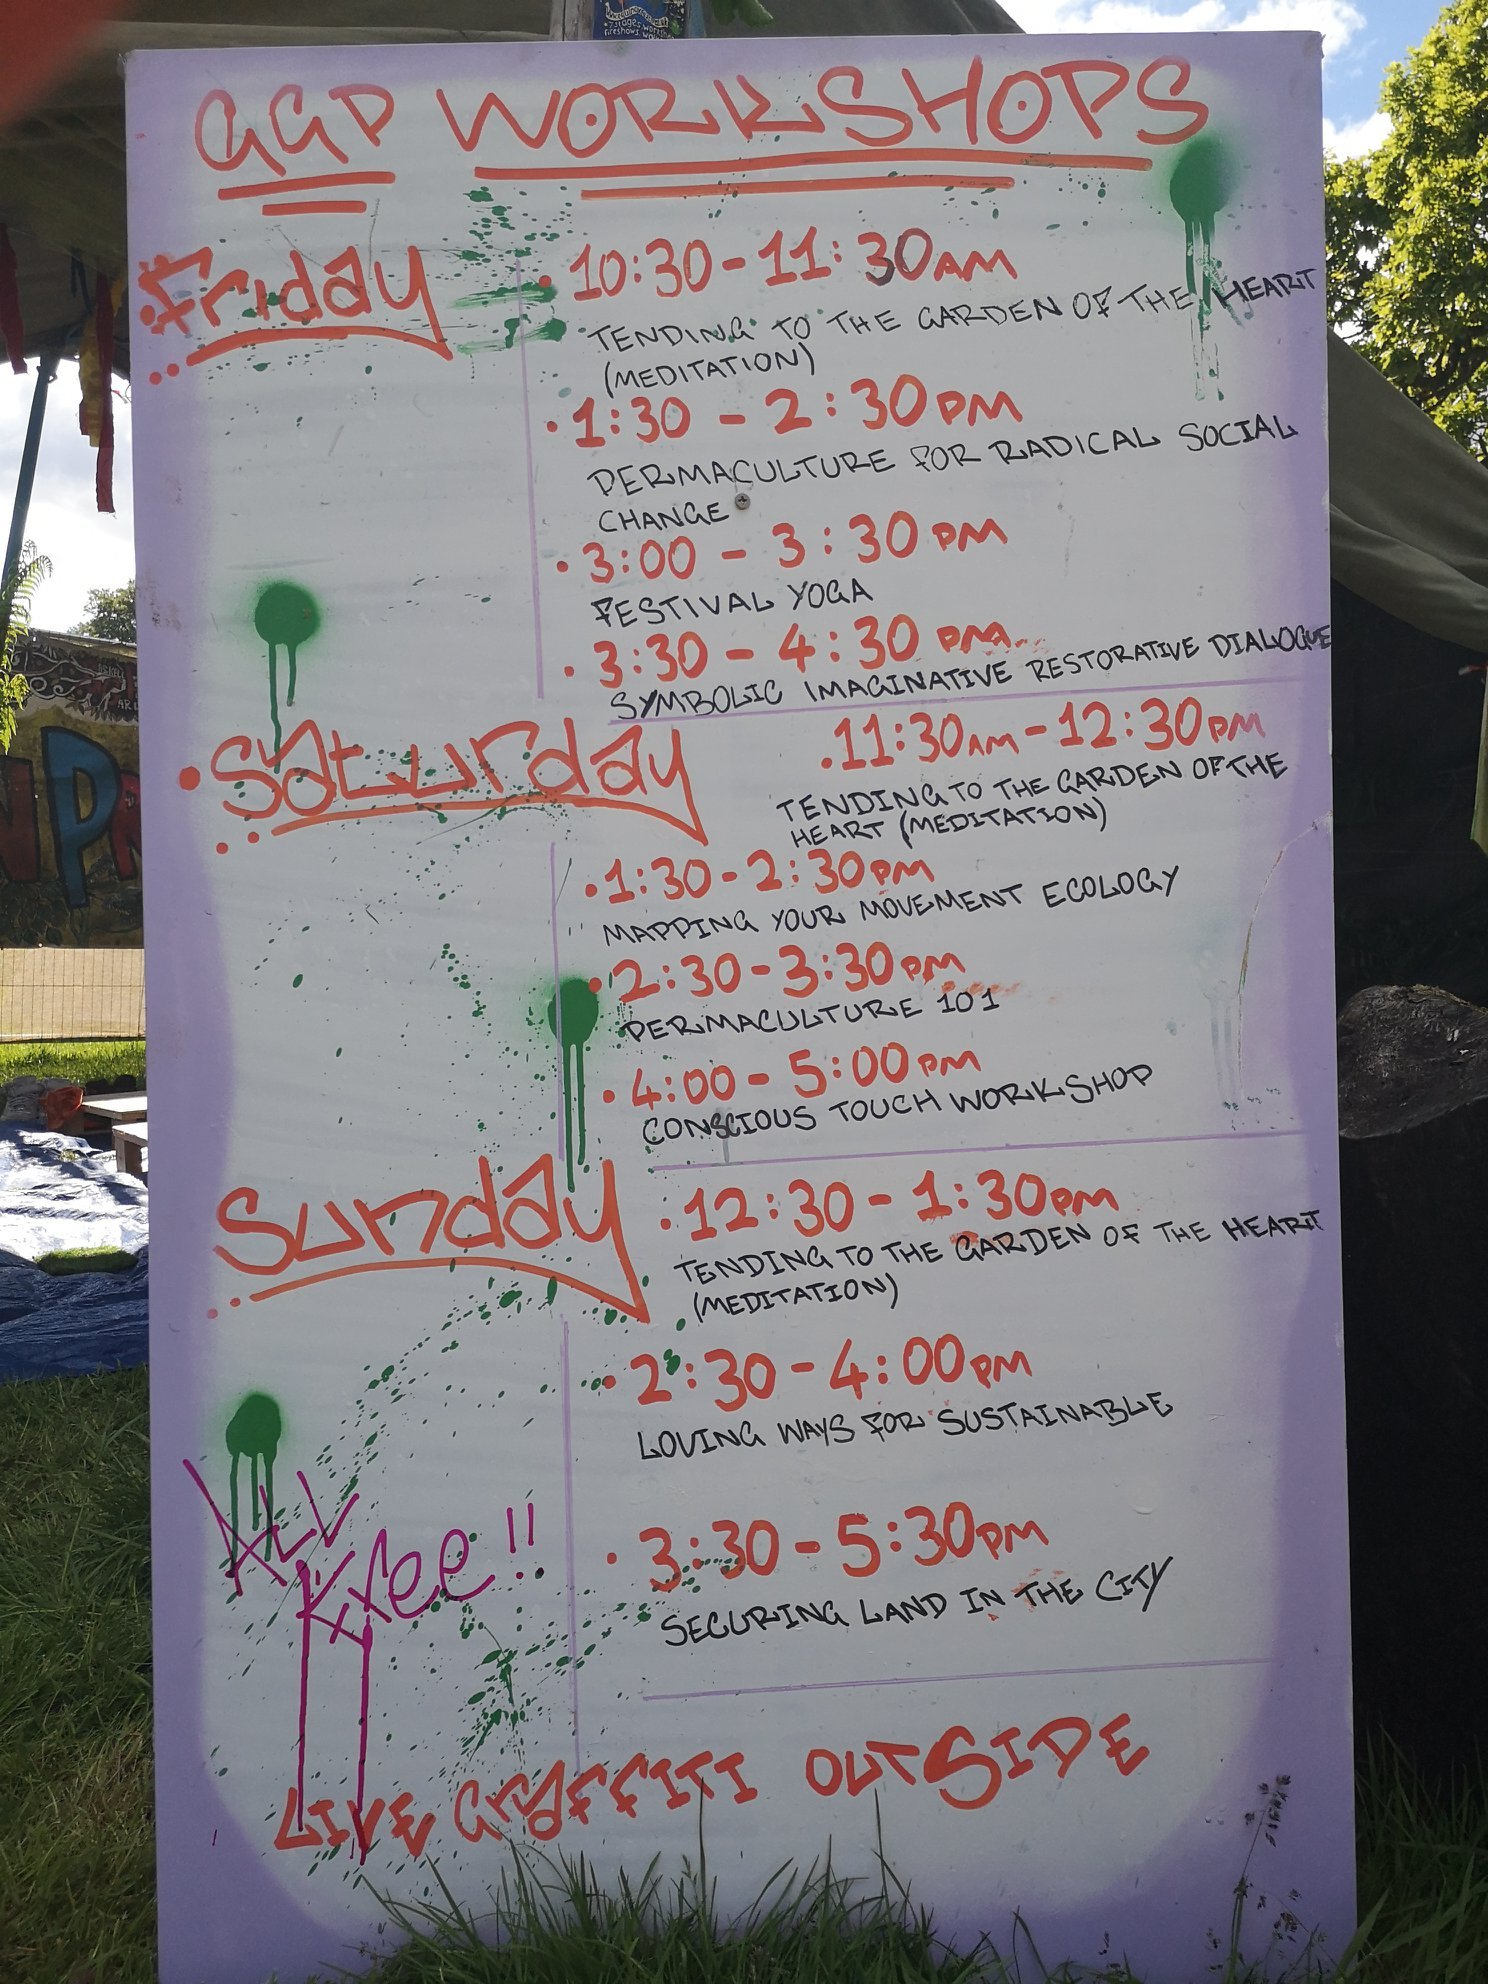 GGP WORKSHOPS
Friday
10:30 - 11:30AM
TENDING TO THE GARDEN OF THE HEART
(MEDITATION)
1:30 - 2:30PM
PERMACULTURE FOR RADICAL SOCIAL
CHANGE
3:00 - 3:30 PM
FESTIVAL YOGA
3:30 - 4:30 PM
SYMBOLIC IMAGINATIVE RESTORATIVE DIALOGUE
Saturday
11:30AM - 12:30PM
TENDING TO THE GARDEN OF THE
HEART (MEDITATION)
1:30 - 2:30PM
MAPPING YOUR MOVEMENT ECOLOGY
2:30 - 3:30PM
PERMACULTURE 101
4:00 - 5:00PM
CONSCIOUS TOUCH WORKSHOP
Sunday
12:30 - 1:30PM
TENDING TO THE GARDEN OF THE HEART
(MEDITATION)
2:30 - 4:00PM
LOVING WAYS FOR SUSTAINABLE
3:30 - 5:30PM
SECURING LAND IN THE CITY
ALL
Free!!
LIVE GRAFFITI OUTSIDE